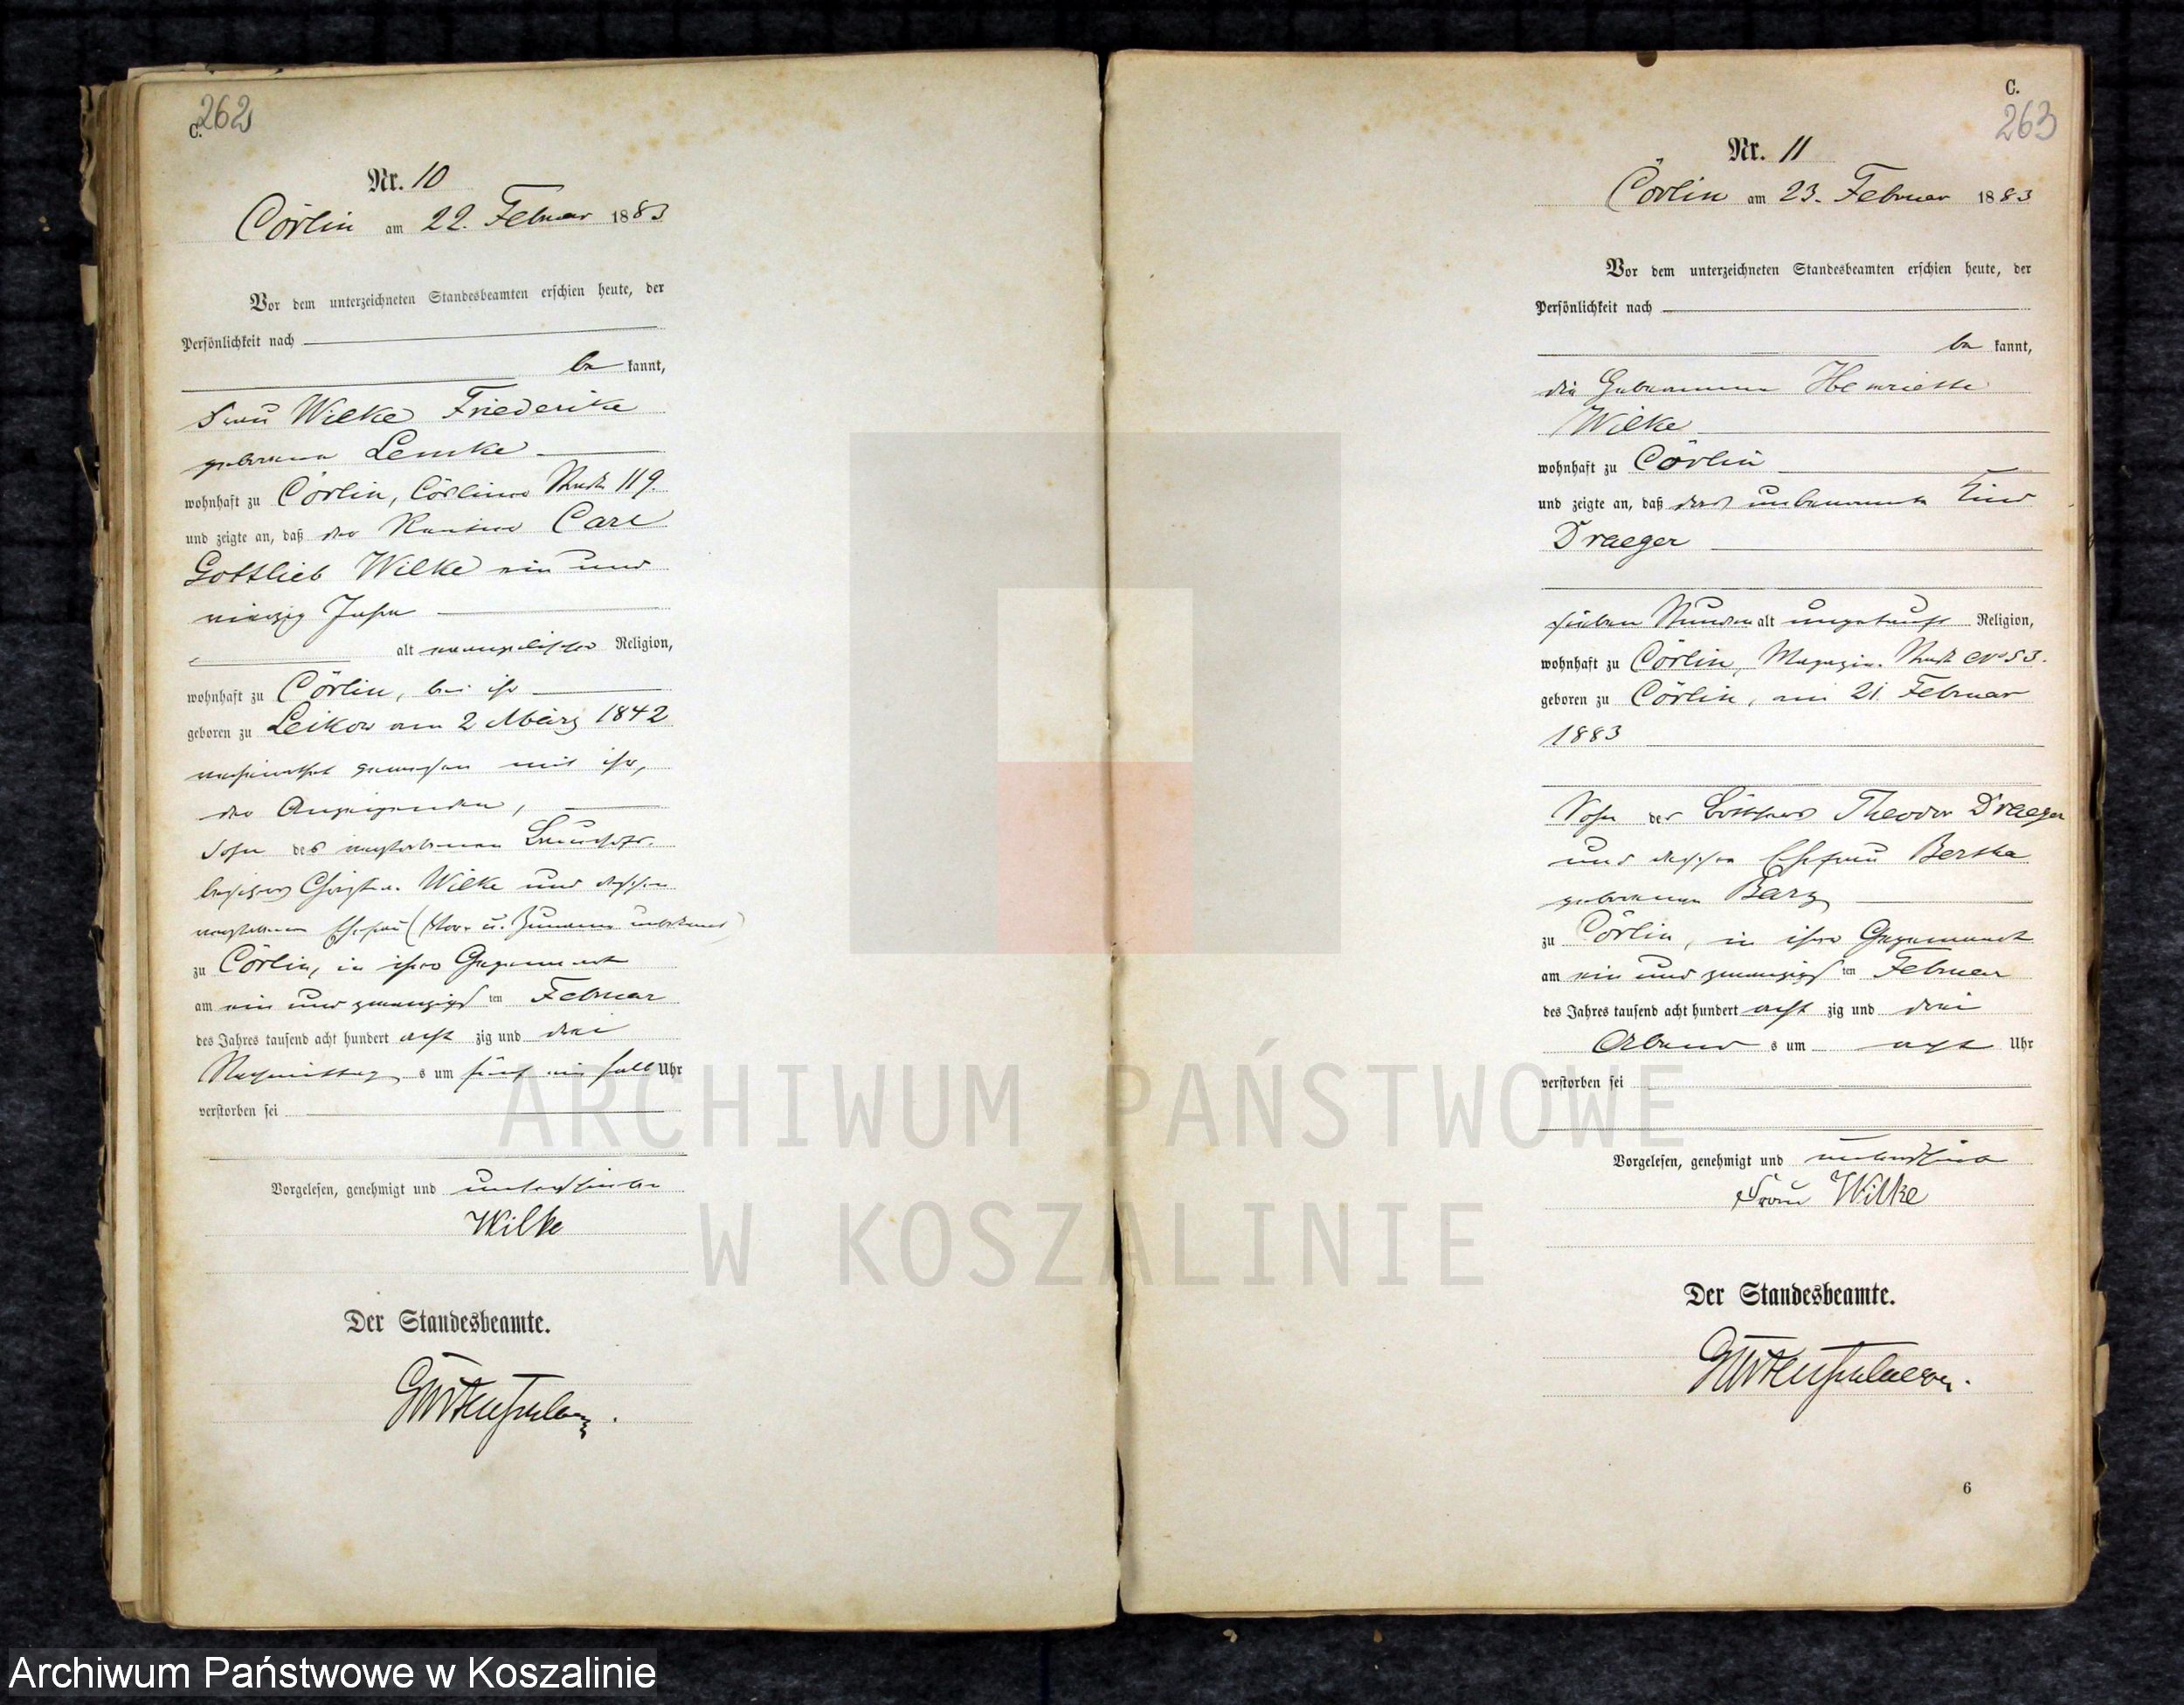 262
C.
Nr. 10
Cörlin am 22. Februar 1883
Vor dem unterzeichneten Standesbeamten erschien heute, der
Persönlichkeit nach
be kannt,
Frau Wilke Friederike
geborene Lemke
wohnhaft zu Cörlin, Cösliner Straße 119.
und zeigte an, daß der Rentier Carl
Gottlieb Wilke ein und
vierzig Jahre
alt evangelischer Religion,
wohnhaft zu Cörlin, bei ihr
geboren zu Leikow am 2 März 1842
verheirathet gewesen mit ihr,
der Anzeigenden,
Sohn des verstorbenen
besitzers Wilke und dessen
verstorbenen Ehefrau (Vor- u. Zuname unbekannt)
zu Cörlin, in ihrer Gegenwart
am ein und zwanzigs ten Februar
des Jahres tausend acht hundert acht zig und drei
Nachmittag s um fünf ein halb Uhr
verstorben sei
Vorgelesen, genehmigt und unterschrieben
Wilke
Der Standesbeamte.
C.
263
Nr. 11
Cörlin am 23. Februar 1883
Vor dem unterzeichneten Standesbeamten erschien heute, der
Persönlichkeit nach
be kannt,
die Hebeamme Henriette
Wilke
wohnhaft zu Cörlin
und zeigte an, daß das unbenannte Kind
Draeger
sieben Stunden alt ungetauft Religion,
wohnhaft zu Cörlin, Magazin-Straße No 53.
geboren zu Cörlin, am 21. Februar
1883
Sohn des Böttchers Theodor Draeger
und dessen Ehefrau Bertha
geborenen Barz
zu Cörlin, in ihrer Gegenwart
am ein und zwanzigs ten Februar
des Jahres tausend acht hundert acht zig und drei
Abend s um acht Uhr
verstorben sei
Vorgelesen, genehmigt und unterschrieben
Frau Wilke
Der Standesbeamte.
6
ARCHIWUM PAŃSTWOWE
W KOSZALINIE
Archiwum Państwowe w Koszalinie